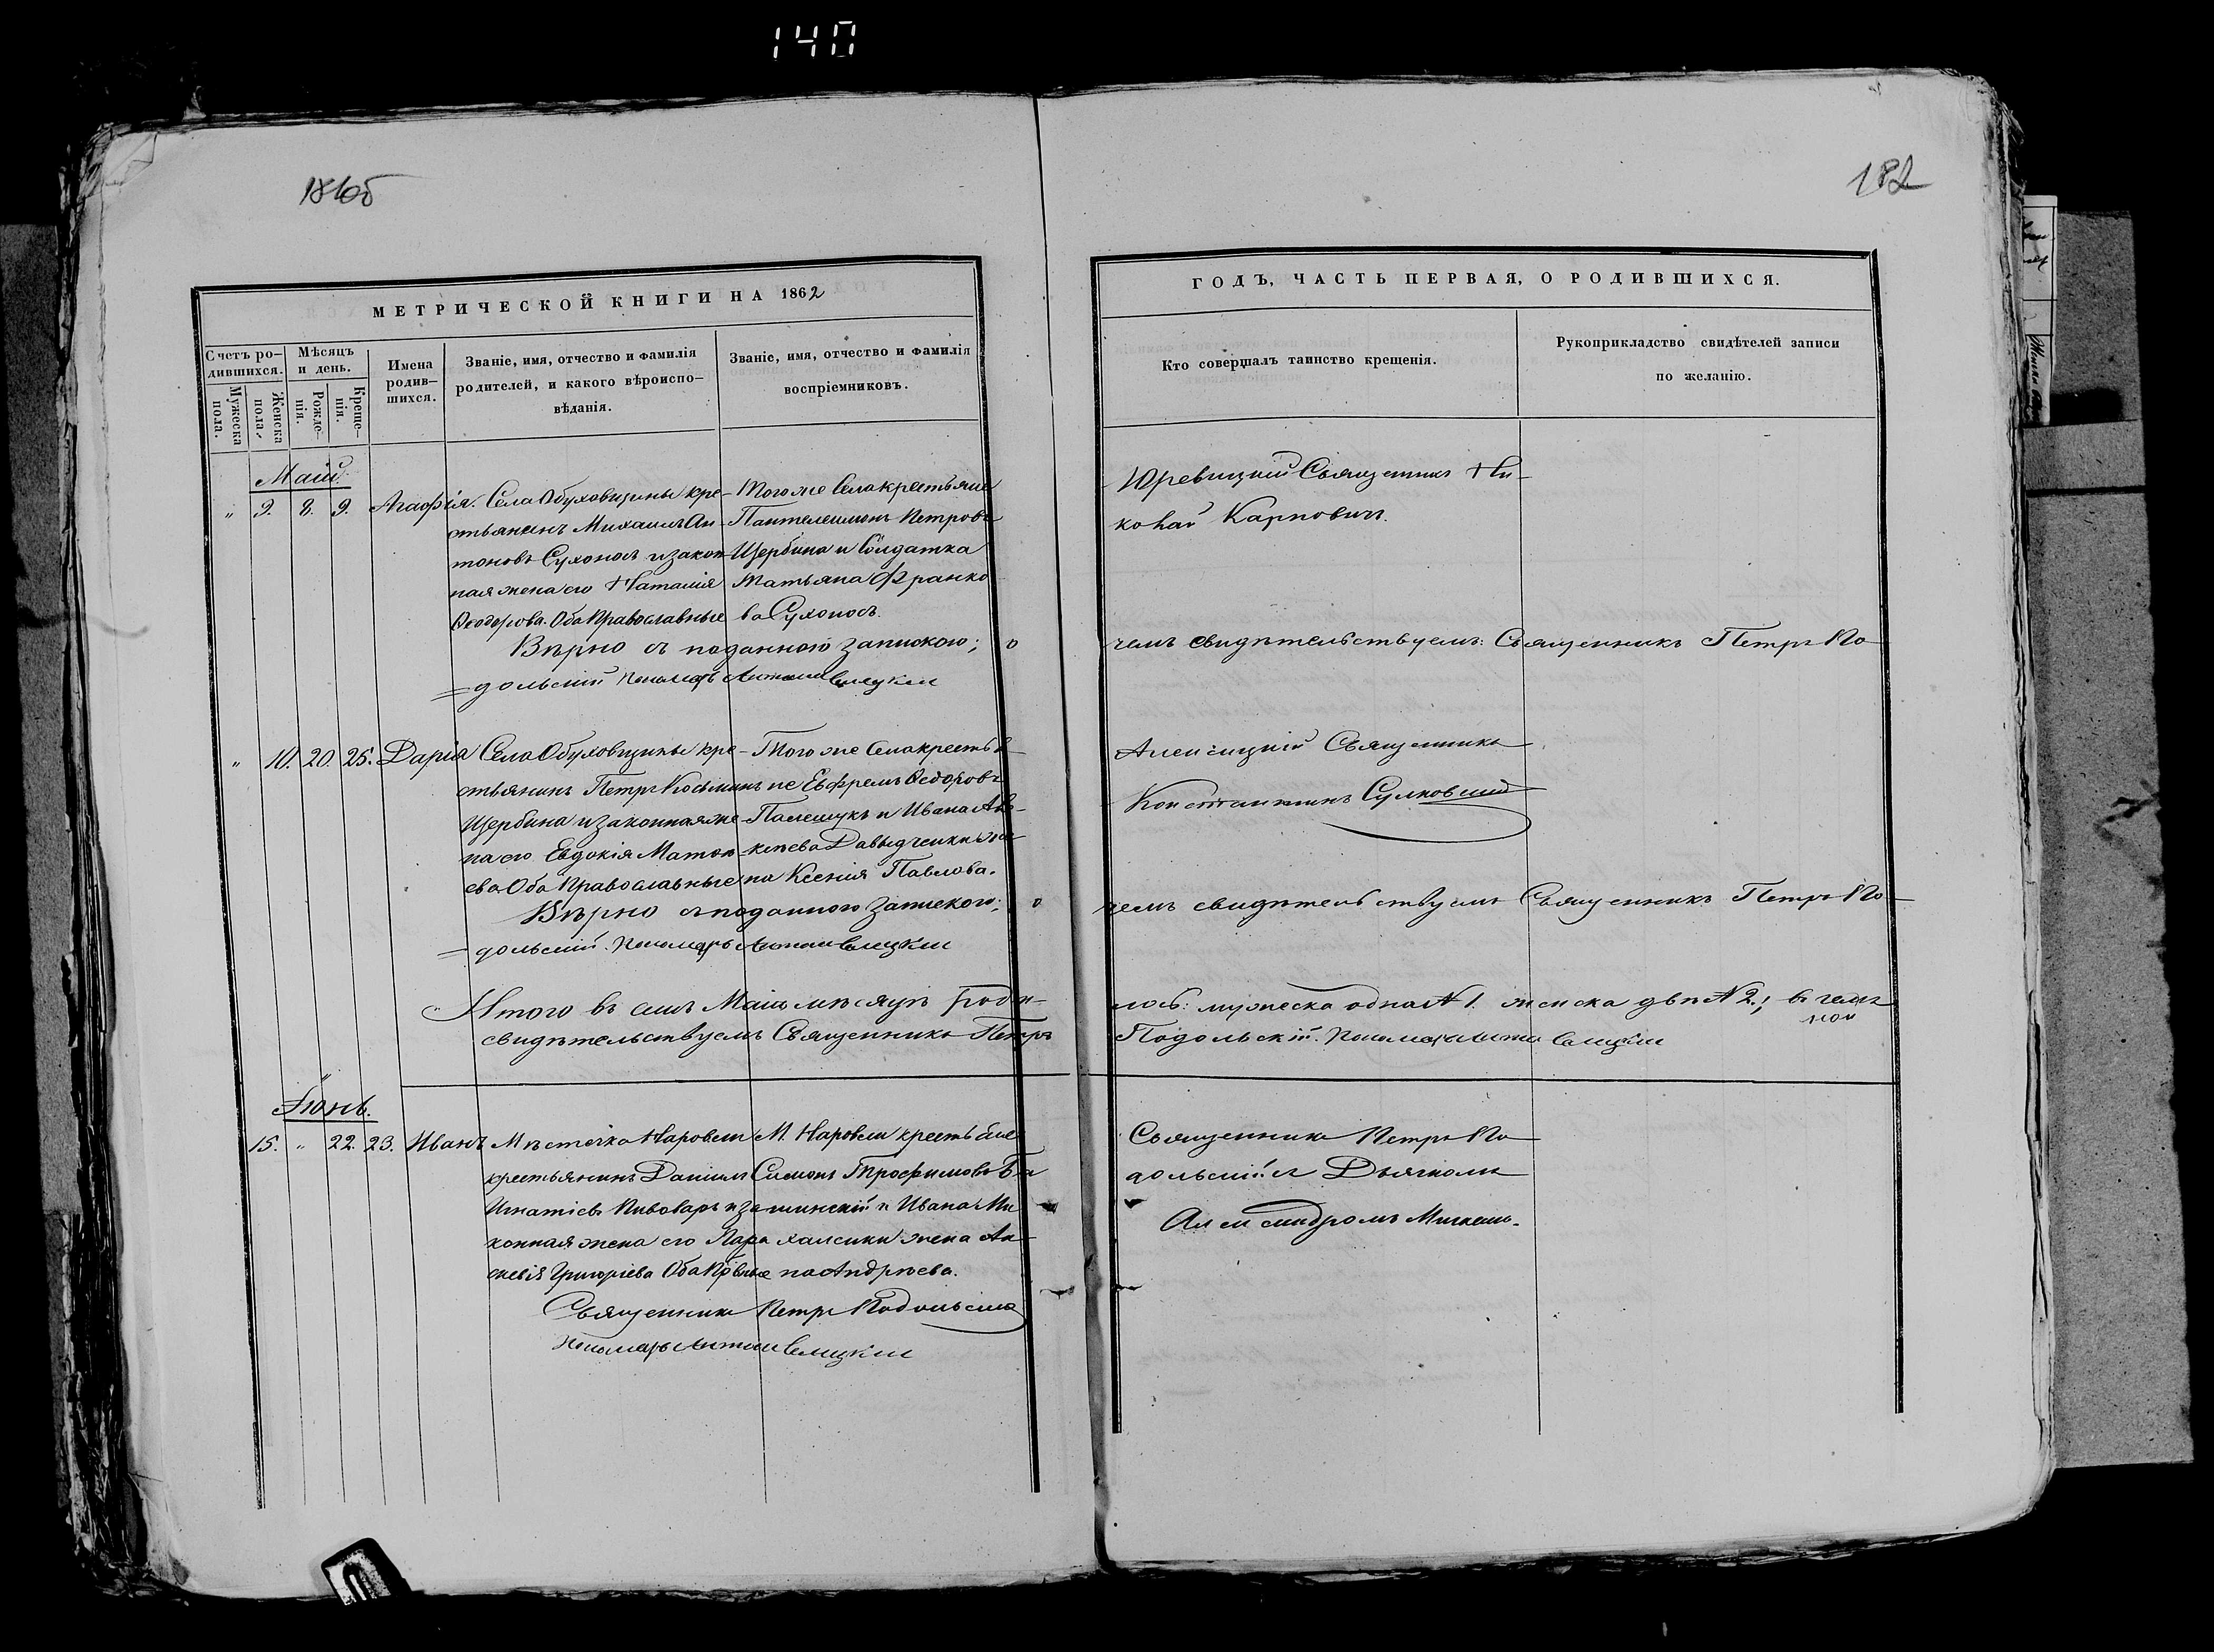 140
182
МЕТРИЧЕСКОЙ КНИГИ НА 1862
ГОДЪ, ЧАСТЬ ПЕРВАЯ, О РОДИВШИХСЯ.
Счетъ ро-
дившихся.
Мужеска
пола.
Женска
пола.
Мѣсяцъ
и день.
Рожде-
нія.
Креще-
нія.
Имена
родив-
шихся.
Званіе, имя, отчество и фамилія
родителей, и какого вѣроиспо-
вѣданія.
Званіе, имя, отчество и фамилія
воспріемниковъ.
Кто совершалъ таинство крещенія.
Рукоприкладство свидѣтелей записи
по желанію.
Маій
„ 9. 8. 9. Агафія.
Села Обуховщины кре-
стьянинъ Михаилъ Ан-
тоновъ Сухоносъ и закон
ная жена его Наталия
Ѳеодорова. Оба Православные
Того же Села крестьяне
Пантелеимонъ Петровъ
Щербина и Солдатка
Татьяна Франко
ва Сухоносъ.
Юревицкій Священникъ Ни-
колай Карповичъ.
Вѣрно съ поданною запискою; о
чемъ свидѣтельствуемъ: Священникъ Петръ По-
=дольскій Пономарь Антоній
„ 10. 20. 25. Дарія
Села Обуховщины кре-
стьянинъ Петръ Косьминъ
Щербина и законная же-
на его Евдокія Матѳе
ева Оба Православные
Того же Села крестья-
не Ефремъ Ѳедоровъ
Палешукъ и Ивана Ав-
кѣева Давыдченки же
на Ксенія Павлова.
Алексицкій Священникъ
Константинъ Сулковский
Вѣрно съ поданною запискою; о
чемъ свидѣтельствуемъ Священникъ Петръ По-
=дольскій. Пономарь Антоній
Итого въ семъ Маіа мѣсяцѣ роди-
лось: мужеска одна N 1. женска двѣ N 2.; въ чемъ
свидѣтельствуемъ Священникъ Петръ
Подольскій. Пономарь
Іюнь.
15. „ 22. 23. Иванъ
Мѣстечка Наровли
крестьянинъ Даніилъ
Игнатіевъ Пивоваръ и за
конная жена его Пара
скевія Григоріева Оба Првные
М. Наровли крестьяне
Симонъ Трофимовъ Ба
шинскій и Ивана Ми
халенки жена Ан-
на Андрѣева.
Священникъ Петръ По
дольскій съ Дьячкомъ
Александромъ
Священникъ Петръ Подольскій
Пономарь Антоній